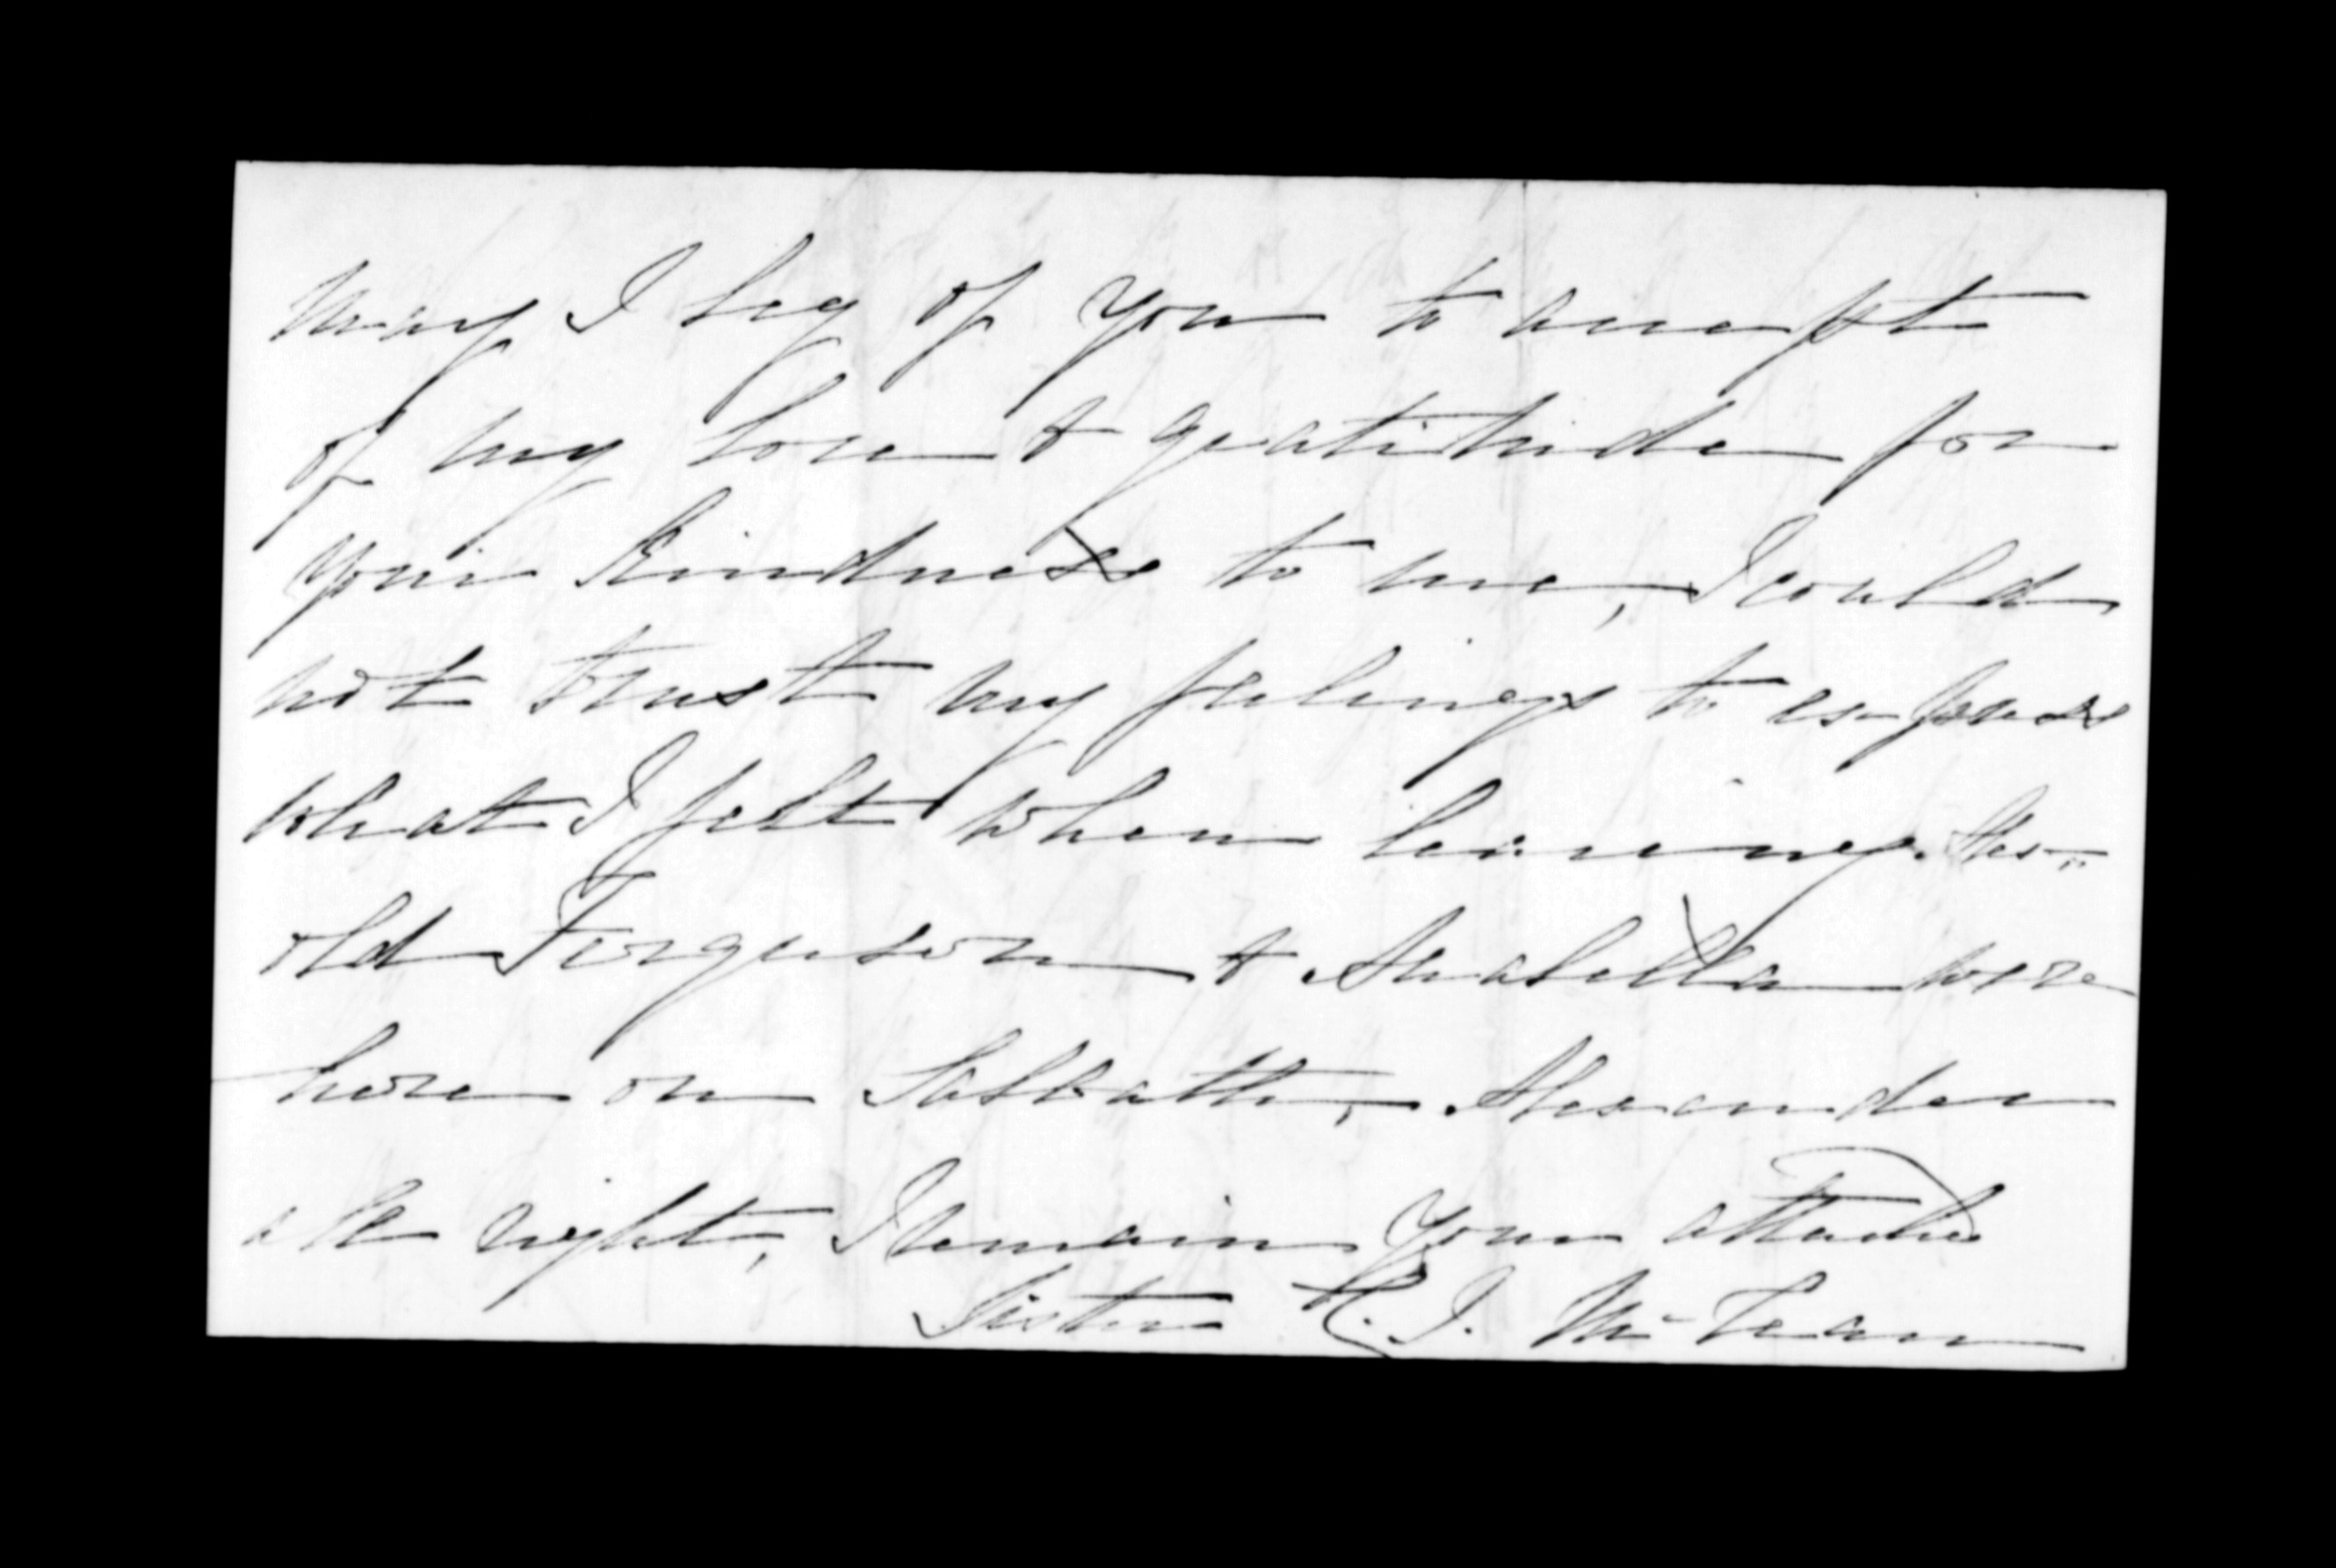 May I beg of you to accept
of my love & gratitude for
your kindness to me, I could
not trust my feelings to express
what I felt when leaving. Alexr
old Ferguson & Anabella were
here on Sabbath, Alexander
all right, I remain your attached
Sister K. J. McLean